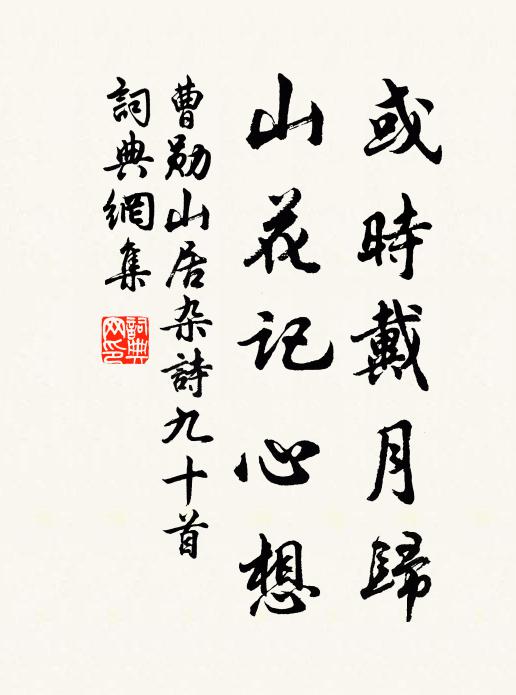 或時戴月歸
山花记心想
曹勛山居杂詩九十首
詞典網集
詞典网印